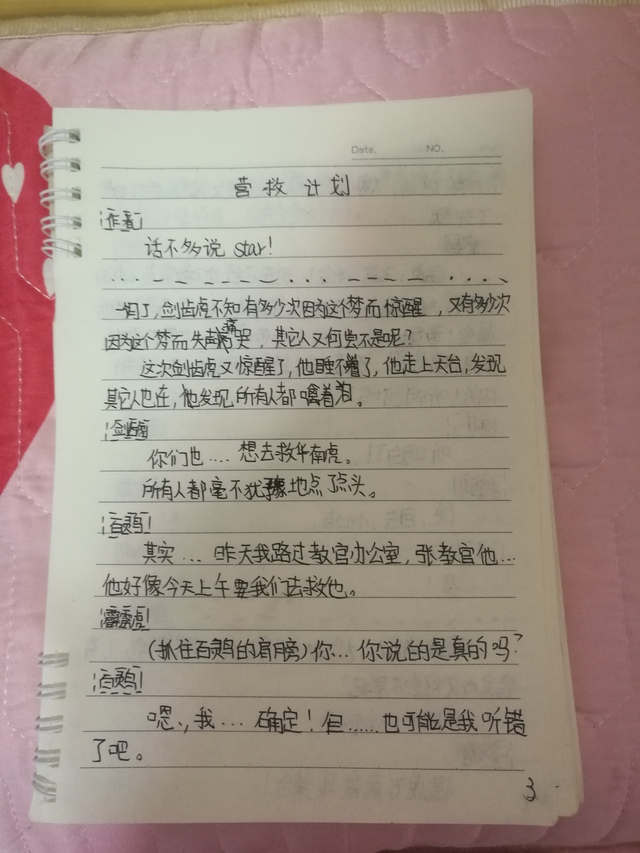 Date. NO.
营救计划
作者
话不多说 star!
一月了,剑齿虎不知有多少次因为这个梦而惊醒,又有多少次
因为这个梦而失声痛哭,其它人又何尝不是呢?
这次剑齿虎又惊醒了,他睡不着了,他走上天台,发现
其它人也在,他发现所有人都噙着泪。
剑齿虎
你们也....想去救华南虎。
所有人都毫不犹豫地点了点头。
百灵鸟
其实...昨天我路过教官办公室,张教官他...
他好像今天上午要我们去救他。
雷霆虎
(抓住百灵鸟的肩膀)你...你说的是真的吗?
百灵鸟
嗯、我...确定!但......也可能是我听错
了吧。
3